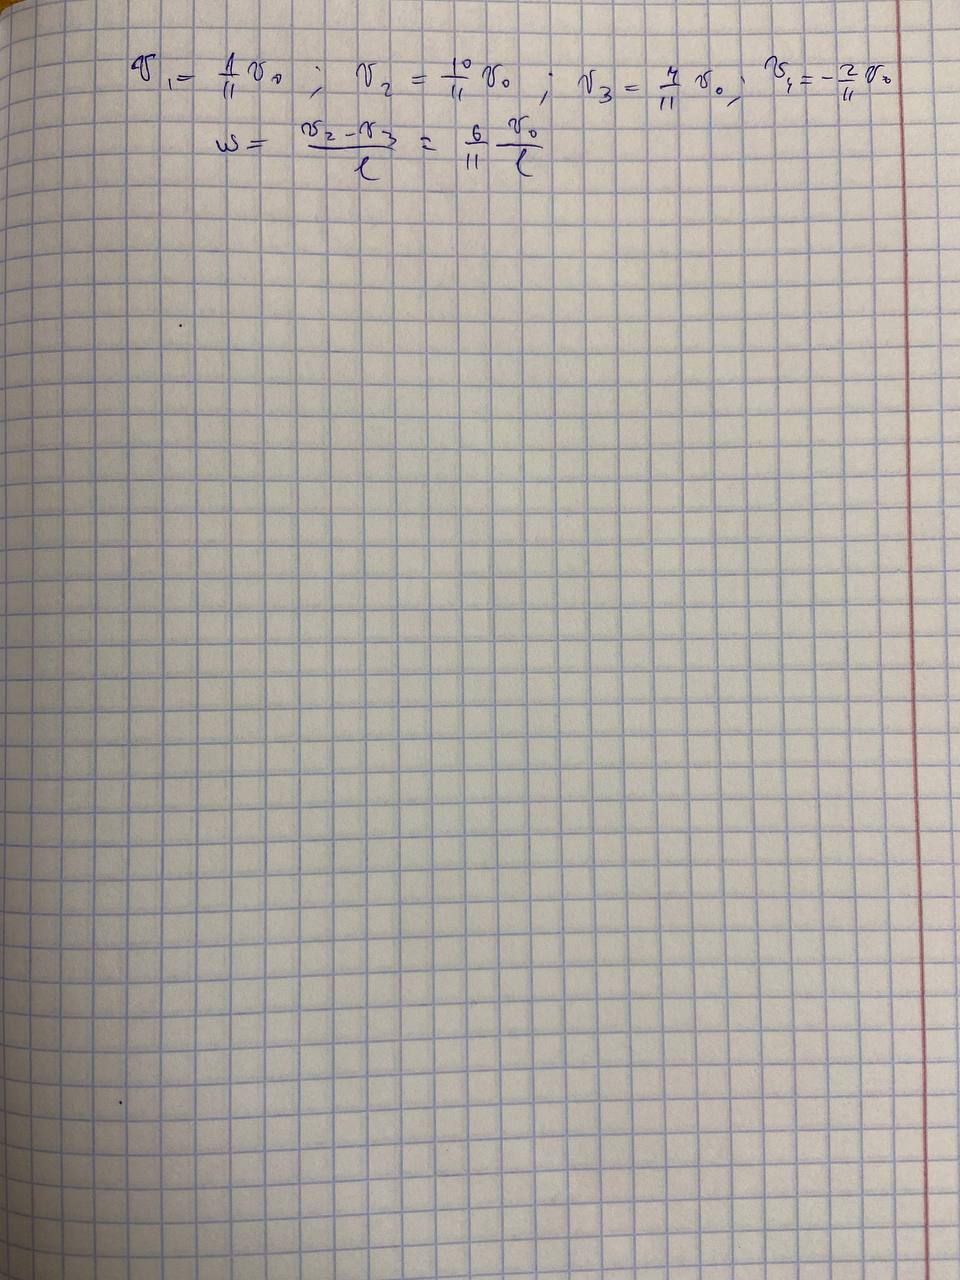 v₁ = 1/11 v₀ ; v₂ = 10/11 v₀ ; v₃ = 4/11 v₀ ; v₄ = -2/11 v₀
ω = (v₂ - v₃)/l = 6/11 v₀/l